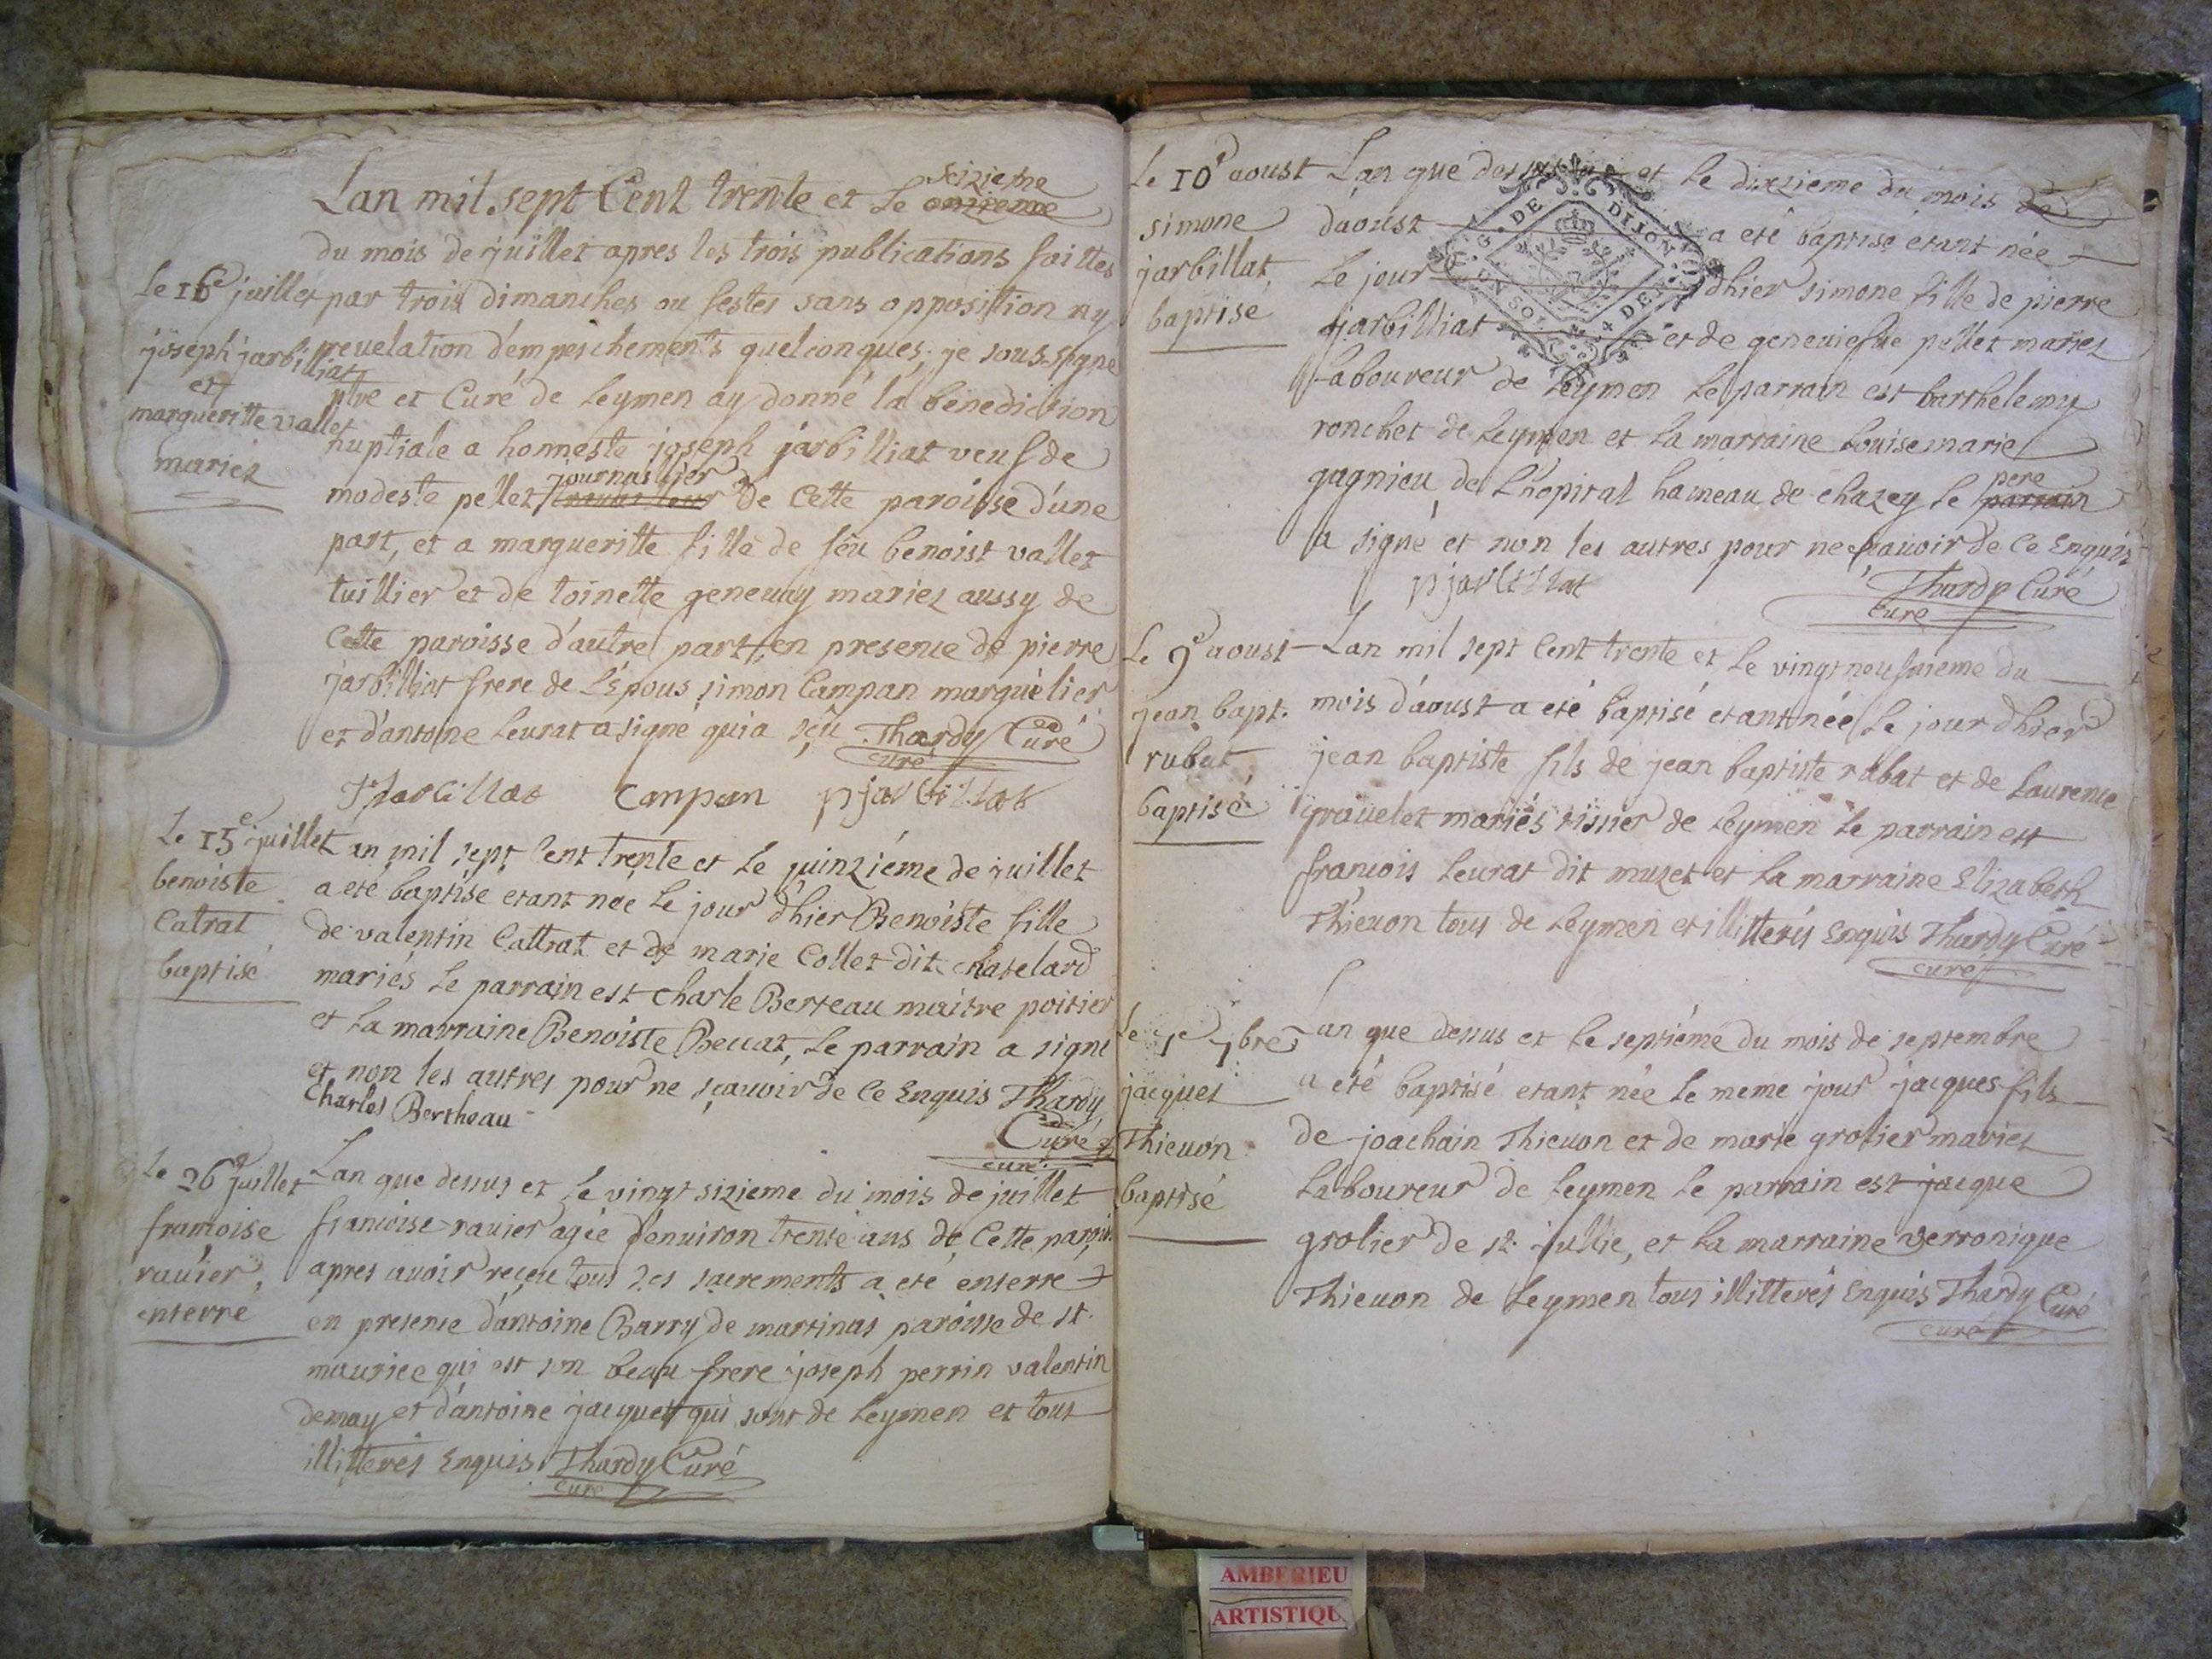 Lan mil sept Cent trente et le seizieme onzieme
du mois de juillet apres les trois publications faittes
Le 16e juillet
joseph jarbilliat
et
margueritte vallet
mariez
par trois dimanches ou festes sans opposition ny
revelation d'empeschements quelconques, je sous-signe
ptre et Curé de Leymen ay donné la benediction
nuptiale a honneste joseph jarbilliat veuf de
modeste pellet journaillier de Cette paroisse d'une
part, et a margueritte fille de feu benoist vallet
tuillier et de toinette geneuay mariez aussy de
Cette paroisse d'autre part, en presence de pierre
jarbilliat frere de L'Epous simon Campan marguèlier
et d'antoine Leurat a signe qui a sçu Thardy Curé
curé
Jjarbillat Campan pjarbillat
Le 15e juillet
benoiste
Catrat
baptisé
Lan mil sept Cent trente et Le quinziéme de juillet
a eté baptise etant nee Le jour d'hier Benoiste fille
de valentin Cattrat et de marie Collet dit chatelard
mariés Le parrain est Charle Berteau maitre poitier
et La marraine Benoiste Beccat, Le parrain a signé
et non les autres pour ne sçauoir de Ce Enquis Thardy
Charles Bertheau
Curé
curé
Le 26e juillet
francoise
rauier
enterré
Lan que dessus et Le vingt sizieme du mois de juillet
francoise rauier agée d'enuiron trente ans de Cette parois.
apres auoir reçeu tous Les sacrements a eté enterré
en presence d'antoine Barry de martinas paroisse de st.
maurice qui est son beau frere joseph perrin valentin
demay et d'antoine jacquet qui sont de Leymen et tous
illitterés Enquis Thardy Curé
curé
Le 10e aoust
simone
jarbillat
baptise
Lan que dessus et Le dixzieme du mois de
d'aoust a eté baptisé etant née
Le jour d'hier simone fille de pierre
jarbilliat et de geneuiefue pellet mariez
Laboureur de Leymen Le parrain est barthelemy
ronchet de Leymen et La marraine Louise marie
gagnieu de L'hopital hameau de chazey Le pere parrain
a signé et non les autres pour ne sçauoir de Ce Enquis
pjarbillat Thardy Curé
Curé
G. DE DIJON
4 DEN
Le 9e aoust
jean bapt.
rubat
baptisé
Lan mil sept Cent trente et Le vingt neufuieme du
mois d'aoust a eté baptisé etant née Le jour d'hier
jean baptiste fils de jean baptiste rubat et de Laurence
grauelet mariés tissier de Leymen Le parrain est
francois Leurat dit muzet et La marraine Elizabeth
Thieuon tous de Leymen et illitterés Enquis Thardy Curé
curé
Le 7e 7bre
jacques
Thieuon
baptisé
Lan que dessus et Le septiéme du mois de septembre
a eté baptisé etant née Le meme jour jacques fils
de joachain Thieuon et de marie grolier mariez
Laboureur de Leymen Le parrain est jacque
grolier de st. jullie, et La marraine verronique
Thieuon de Leymen tous illitterés Enquis Thardy Curé
curé
AMBERIEU
ARTISTIQU